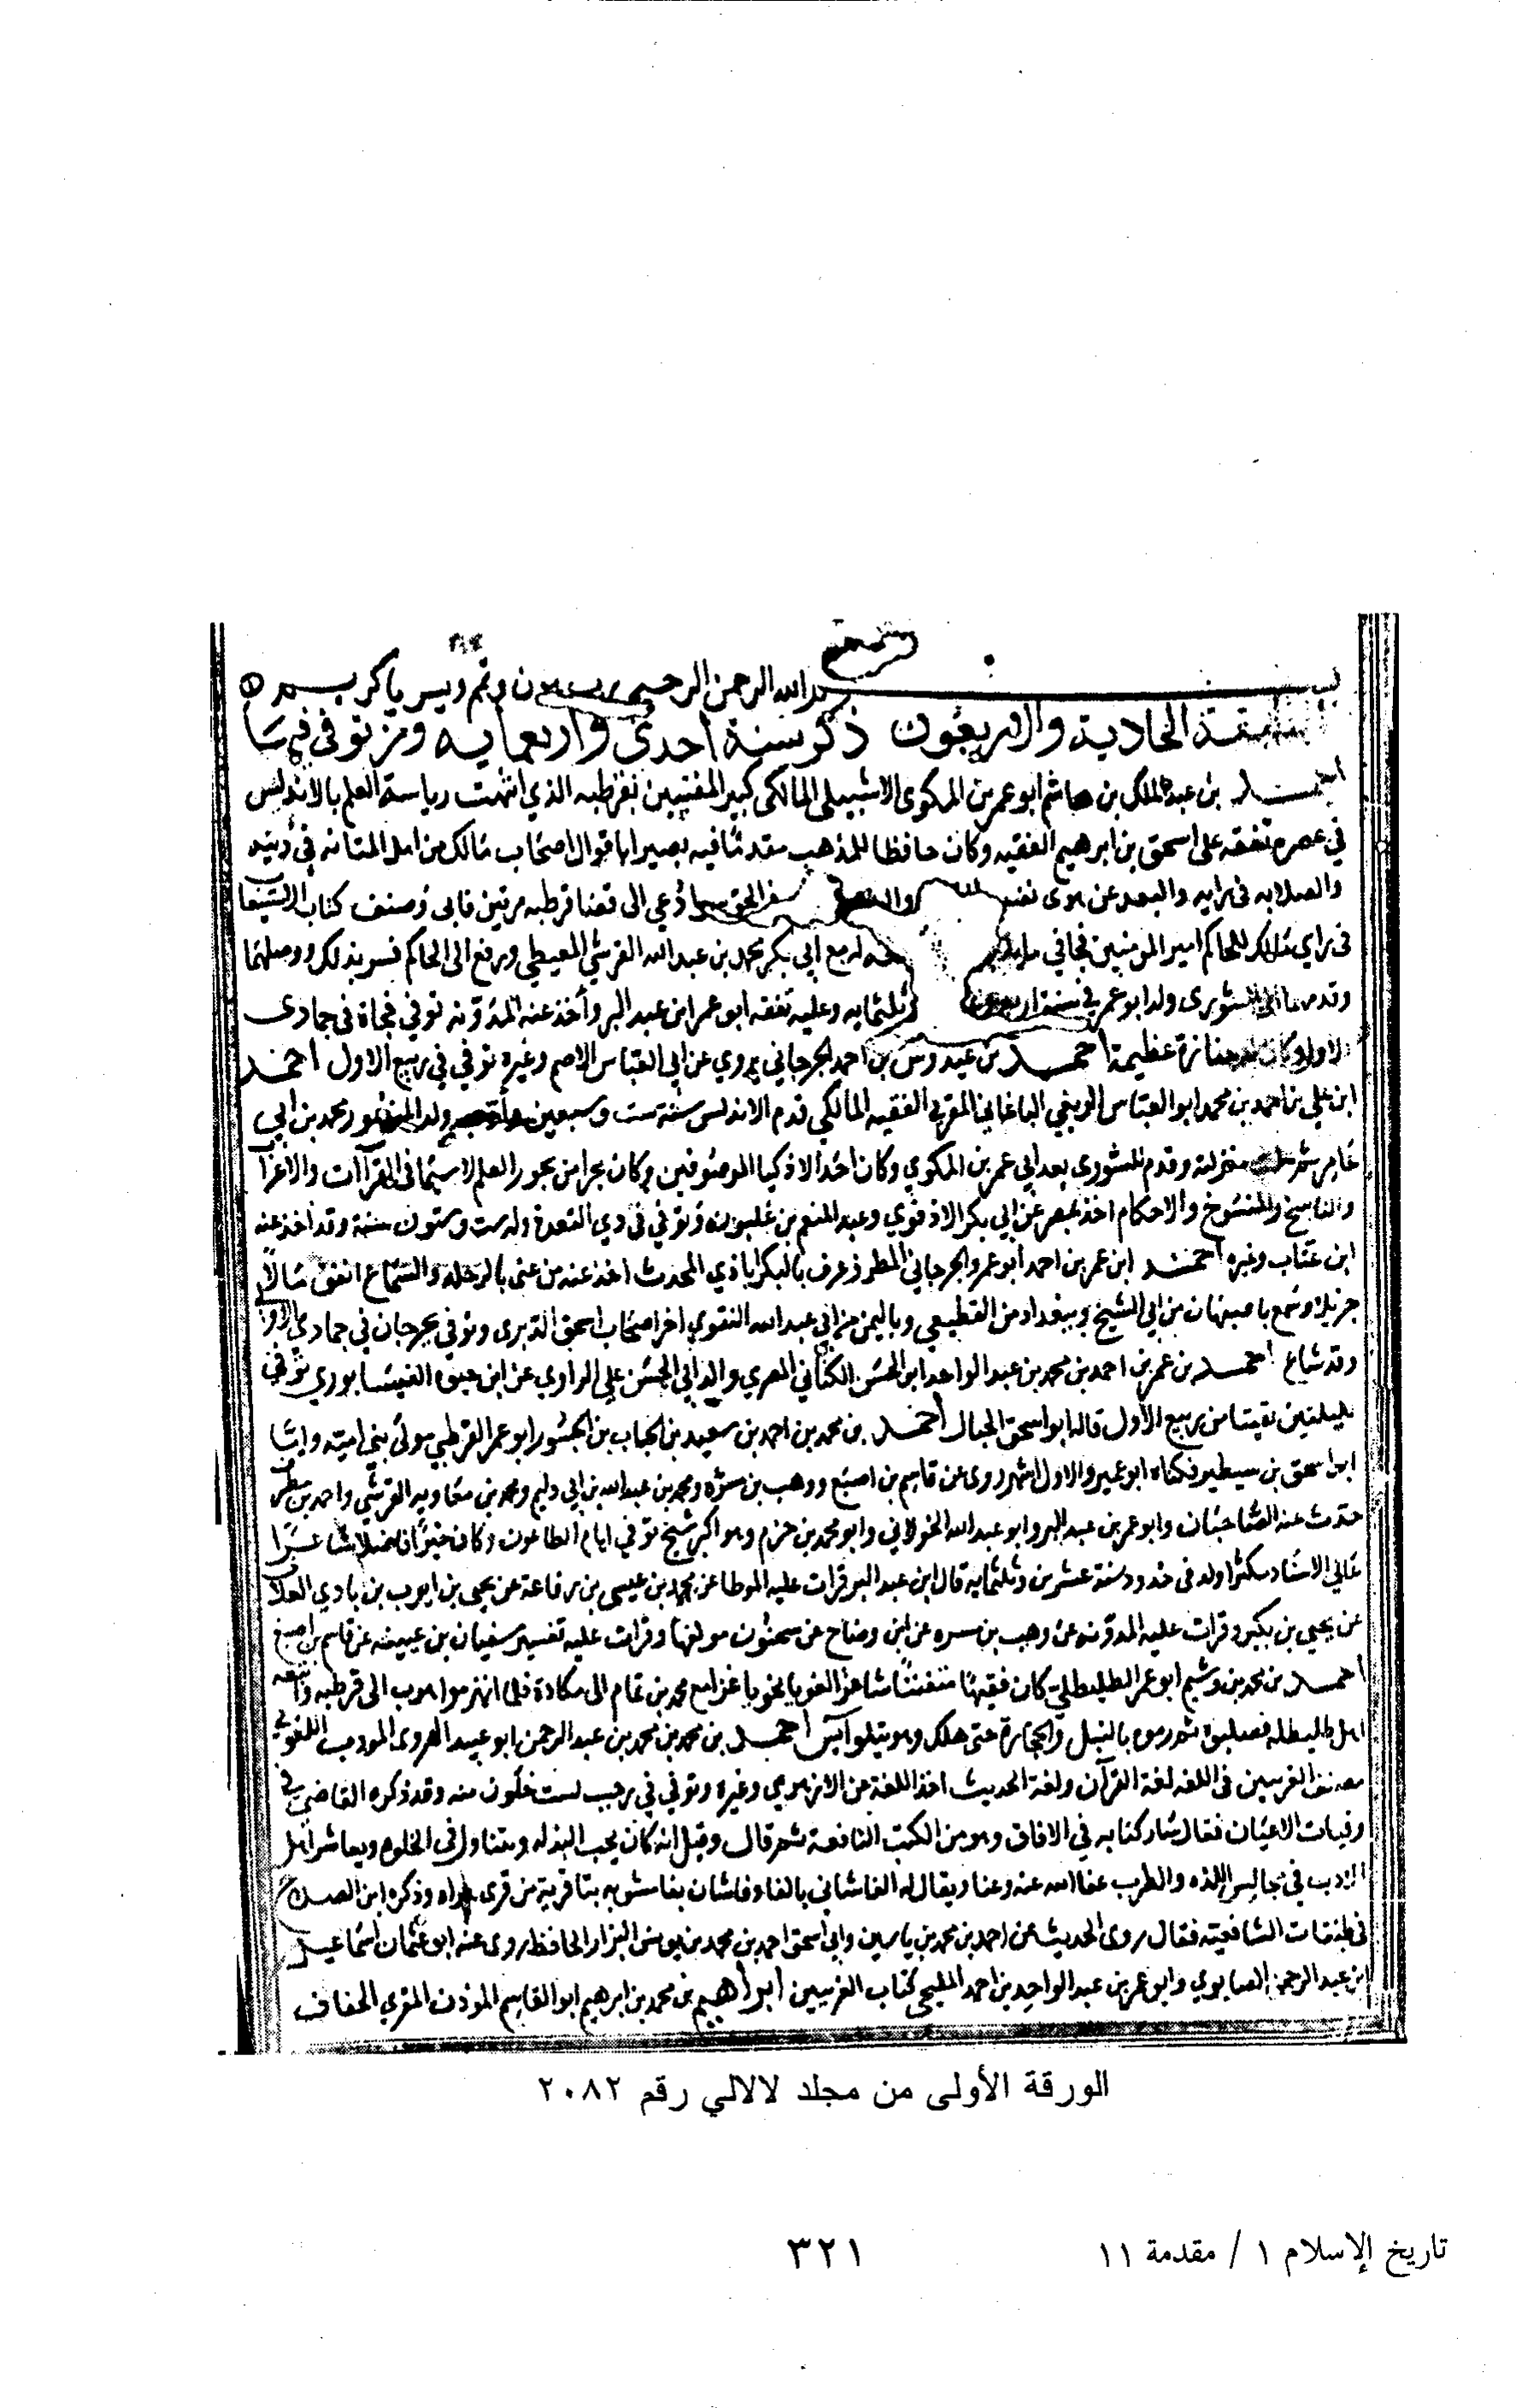 بسم الله الرحمن الرحيم رب وتمم ويسر يا كريم
الطبقة الحادية والاربعون ذكر سنة احدى واربعمايه ومن توفي فيها
احمد بن عبد الملك بن هاشم ابو عمر بن المكوى الاشبيلي المالكى كبير المفتيين بقرطبه الذي انتهت رياسة العلم بالاندلس
في عصره تفقه على اسحق بن ابرهيم الفقيه وكان حافظا للمذهب مقدما فيه بصيرا باقوال اصحاب مالك من اهل المتانه في دينه
والصلابه فى رايه والبعد عن هوى نفسه دعي الى قضا قرطبه مرتين فابى وصنف كتاب الاستيعاب
فى راي مالك للحاكم امير المومنين فجا في مايه له مع ابي بكر محمد بن عبد الله القرشي المعيطي ورفع الى الحاكم فسر بذلك ووصلهما
وقدمهما الى الشورى ولد ابو عمر في سنة اربع وعشرين وثلثمايه وعليه تفقه ابو عمر ابن عبد البر وأخذ عنه المدونه توفي فجاة فى جمادى
الاولى وكان له جنازة عظيمة احمد بن عبدوس بن احمد الجرجاني يروي عن ابي العباس الاصم وغيره توفي في ربيع الاول احمد
ابن علي بن احمد بن محمد ابو العباس الربغي الباغاني المقرئ الفقيه المالكي قدم الاندلس سنة ست وسبعين ولد المنصور محمد بن ابي
عامر ثم منزلته وقدم للشورى بعد ابي عمر بن المكوي وكان احد الاذكيا الموصوفين وكان بحرا من بحور العلم لا سيما فى القرآات والاعراب
والناسخ والمنسوخ والاحكام اخذ بمصر عن ابي بكر الاذفوي وعبد المنعم بن غلبون وتوفي في ذي القعدة وله ست وستون سنة وقد اخذ عنه
ابن عتاب وغيره احمد ابن عمر بن احمد ابو عمرو الجرجاني المطرز عرف بالبكراباذي المحدث اخذ عنه من عنى بالرحله والسماع انفق مالا
جزيلا وسمع باصبهان من ابي الشيخ وببغداد من القطيعي وباليمن من ابي عبد الله النقوي اخر اصحاب اسحق الدبرى وتوفي بجرجان في جمادى الاولى
وقد شاخ احمد بن عمر بن احمد بن محمد بن عبد الواحد ابن الحسن الكناني المصري والد ابي الحسن علي الراوي عن ابن حيوه النيسابوري توفي
لليلتين بقيتا من ربيع الاول قاله ابو اسحق الحبال احمد بن محمد بن احمد بن سعيد بن الحباب بن الجسور ابو عمر القرطبي مولى بني اميته واما
ابو اسحق بن شنظير فكناه ابو عمير والاول اشهر روى عن قاسم بن اصبغ ووهب بن مسره ومحمد بن عبد الله بن ابي دليم ومحمد بن معاويه القرشي واحمد بن مطرف
حدث عنه الصاحبان وابو عمر بن عبد البر وابو عبد الله الخولاني وابو محمد بن حزم وهو اكبر شيخ توفي ايام الطاعون وكان خيرا فاضلا شاعرا
عالي الاسناد مكثرا ولد فى حدود سنة عشرين وثلثمايه قال ابن عبد البر قرات عليه الموطا عن محمد بن عيسى بن رفاعة عن يحيى بن ايوب بن بادي العلاف
عن يحيى بن بكير وقرات عليه المدونه عن وهب بن مسره عن ابن وضاح عن سحنون مولفها وقرات عليه تفسير سفيان بن عيينه عن قاسم بن اصبغ
احمد بن محمد بن وسيم ابو عمر الطليطلي كان فقيها متفننا شاعرا لغويا نحويا غزا مع محمد بن تمام الى مكادة فلما انهزموا هرب الى قرطبه واتبعه
اهل طليطله فصلبوه ثم رموه بالنبل والحجارة حتى هلك وهو يتلوا يس احمد بن محمد بن محمد بن عبد الرحمن ابو عبيد الهروى المودب اللغوي
مصنف الغريبين فى اللغه لغة القرآن ولغة الحديث اخذ اللغة عن الازهري وغيره وتوفي في رجب لست خلون منه وقد ذكره القاضي في
وفيات الاعيان فقال سار كتابه في الافاق وهو من الكتب النافعة ثم قال وقيل انه كان يحب البذله ويتناول فى الخلوه ويعاشر اهل
الادب في مجالس اللذه والطرب عفا الله عنه وعنا ويقال له الفاشاني بالفا وفاشان بفا مشوبه ببا قرية من قرى هراه وذكره ابن الصلاح
فى طبقات الشافعية فقال روى الحديث عن احمد بن محمد بن ياسين وابي اسحق احمد بن محمد بن يونس البزار الحافظ روى عنه ابو عثمان اسماعيل
ابن عبد الرحمن الصابوني وابو عمر بن عبد الواحد بن احمد المليحي كتاب الغريبين ابراهيم بن محمد بن ابرهيم ابو القاسم الموذن المقري الخفاف
الورقة الأولى من مجلد لالالي رقم ٢٠٨٢
تاريخ الإسلام ١ / مقدمة ١١
٣٢١